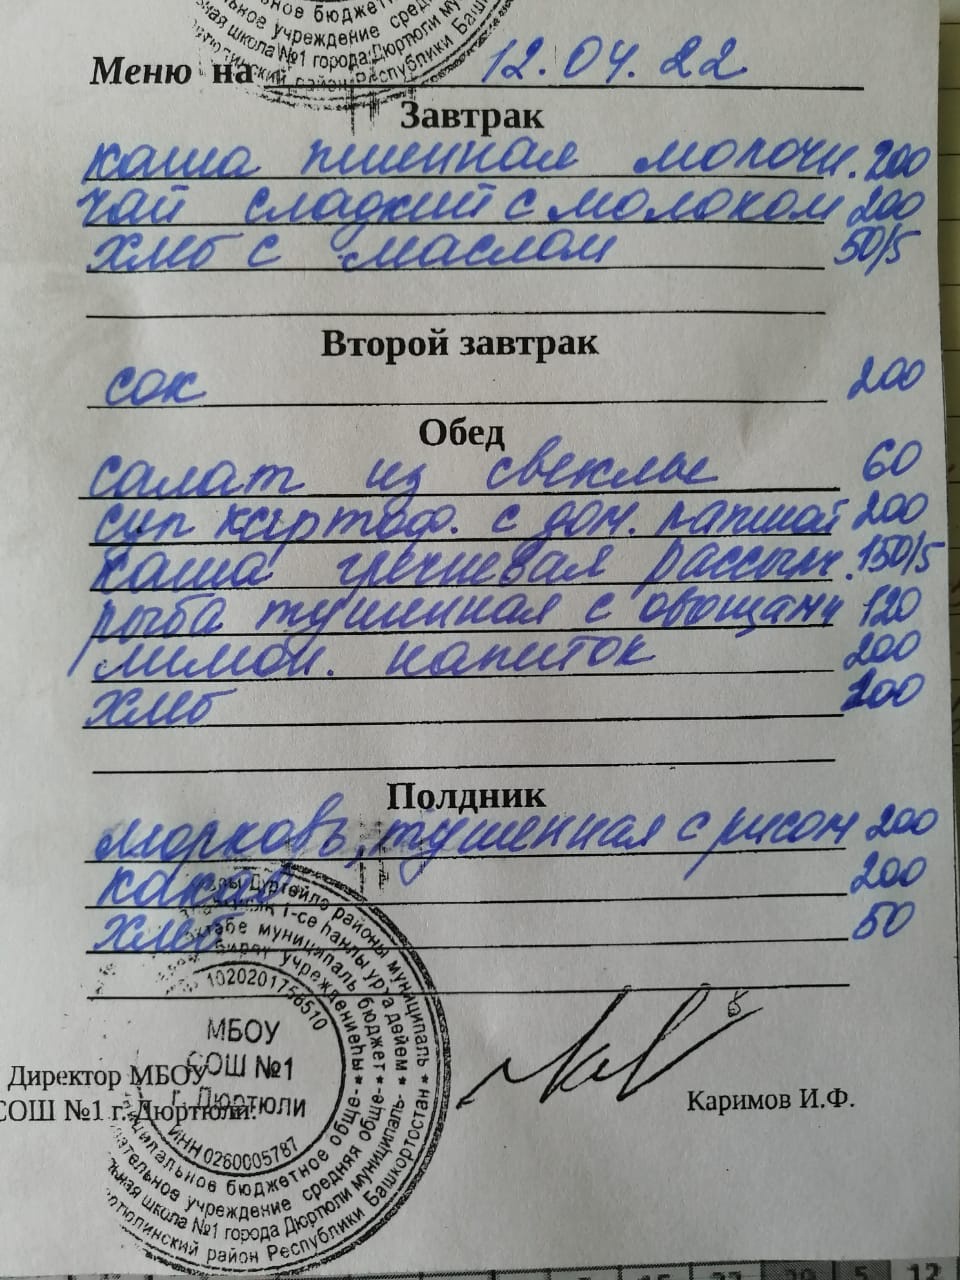 льное бюджетно
учреждение сред
ная школа №1 города Дюртюли му
район Республики Башк
Меню на 12.04.22
Завтрак
каша пшенная молочн. 200
чай сладкий с молоком 200
хлеб с маслом 50/5
Второй завтрак
сок 200
Обед
салат из свеклы 60
суп картоф. с дом. лапшой 200
каша гречневая рассып. 150/5
рыба тушенная с овощами 120
лимон. напиток 200
хлеб 200
Полдник
морковь, тушенная с рисом 200
какао 200
хлеб 50
1020201756510
МБОУ
СОШ №1
г. Дюртюли
ИНН 0260005787
Директор МБОУ
СОШ №1 г. Дюртюли:
Каримов И.Ф.
районы муниципаль * Башкортостан *
1-се һанлы урта дөйөм *
муниципаль бюджет
учреждениеһы *
муниципальное бюджетное обще-
учреждение средняя обще-
школа №1 города Дюртюли муниципаль-
Дюртюлинский район Республики Башкортостан
12